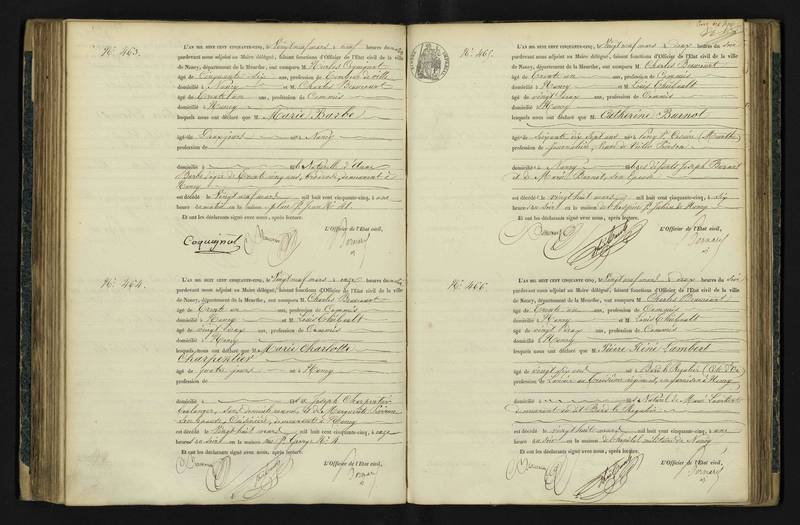 N.° 463.
L'AN MIL HUIT CENT CINQUANTE-CINQ, le Vingt neuf mars à neuf heures du matin
pardevant nous adjoint au Maire délégué, faisant fonctions d'Officier de l'Etat civil de la ville
de Nancy, département de la Meurthe, ont comparu M. Coquignot
âgé de Cinquante six ans, profession de de ville
domicilié à Nancy et M. Charles Beaucourt
âgé de trente un ans, profession de Commis
domicilié à Nancy
lesquels nous ont déclaré que M. Marie Barbe
âgé de Deux jours né à Nancy
profession de
domicilié à Naturelle d'Anne
Barbe âgée de trente cinq ans, demeurant à
Nancy
est décédé le Vingt neuf mars mil huit cent cinquante-cinq, à une
heure du matin en la maison place St. Jean N.° 41
Et ont les déclarants signé avec nous, après lecture.
L'Officier de l'Etat civil,
Coquignot
Bernard
N.° 464.
L'AN MIL HUIT CENT CINQUANTE-CINQ, le Vingt neuf mars à onze heures du matin
pardevant nous adjoint au Maire délégué, faisant fonctions d'Officier de l'Etat civil de la ville
de Nancy, département de la Meurthe, ont comparu M. Charles Beaucourt
âgé de trente un ans, profession de Commis
domicilié à Nancy et M. Louis Thiébault
âgé de vingt deux ans, profession de Commis
domicilié à Nancy
lesquels nous ont déclaré que M. Marie Charlotte
Charpentier
âgé de quatre jours né à Nancy
profession de
domicilié à de Joseph Charpentier
boulanger, et de Marguerite
son épouse, demeurant à Nancy
est décédé le Vingt huit mars mil huit cent cinquante-cinq, à onze
heures du soir en la maison rue St. George N.° 4
Et ont les déclarants signé avec nous, après lecture.
L'Officier de l'Etat civil,
Bernard
N.° 465.
L'AN MIL HUIT CENT CINQUANTE-CINQ, le Vingt neuf mars à deux heures du soir
pardevant nous adjoint au Maire délégué, faisant fonctions d'Officier de l'Etat civil de la ville
de Nancy, département de la Meurthe, ont comparu M. Charles Beaucourt
âgé de trente un ans, profession de Commis
domicilié à Nancy et M. Louis Thiébault
âgé de vingt deux ans, profession de Commis
domicilié à Nancy
lesquels nous ont déclaré que M. Catherine Burnot
âgé de soixante dix sept ans né à (Meurthe)
profession de Journalière, Veuve de
domicilié à Nancy Joseph Burnot
et de Marie Burnot, son épouse
est décédé le vingt huit mars mil huit cent cinquante-cinq, à six
heures du soir en la maison de hospice St. Julien à Nancy
Et ont les déclarants signé avec nous, après lecture.
L'Officier de l'Etat civil,
Bernard
N.° 466.
L'AN MIL HUIT CENT CINQUANTE-CINQ, le Vingt neuf mars à deux heures du soir
pardevant nous adjoint au Maire délégué, faisant fonctions d'Officier de l'Etat civil de la ville
de Nancy, département de la Meurthe, ont comparu M. Charles Beaucourt
âgé de trente un ans, profession de Commis
domicilié à Nancy et M. Louis Thiébault
âgé de vingt deux ans, profession de Commis
domicilié à Nancy
lesquels nous ont déclaré que M. Pierre Réné Lambert
âgé de vingt six ans né à Bard le Régulier (Côte d'Or)
profession de Lancier au troisième régiment, en garnison à Nancy
domicilié à Naturel de Marie Lambert
demeurant au dit Bard le Régulier
est décédé le vingt huit mars mil huit cent cinquante-cinq, à une
heure du soir en la maison de hôpital militaire de Nancy
Et ont les déclarants signé avec nous, après lecture.
L'Officier de l'Etat civil,
Bernard